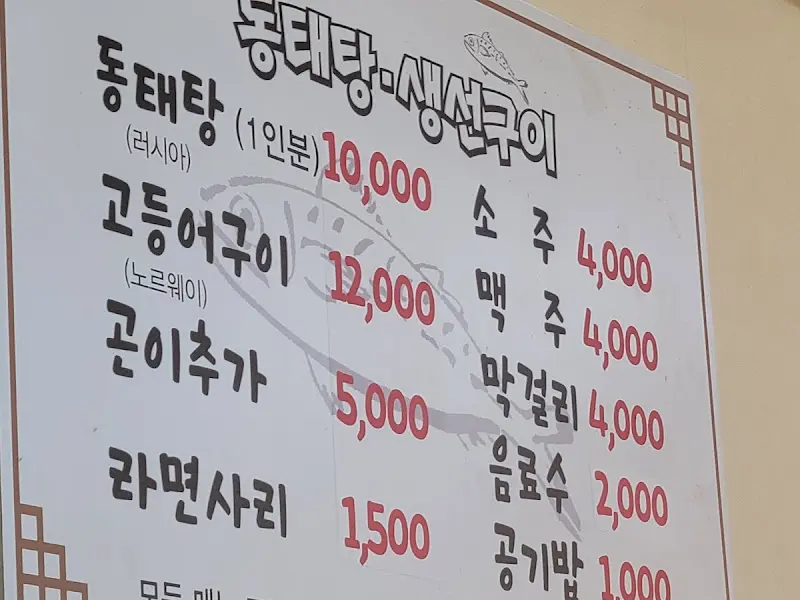 동태탕·생선구이
동태탕 (1인분) 10,000
(러시아)
고등어구이 12,000
(노르웨이)
곤이추가 5,000
라면사리 1,500
소 주 4,000
맥 주 4,000
막걸리 4,000
음료수 2,000
공기밥 1,000
모든